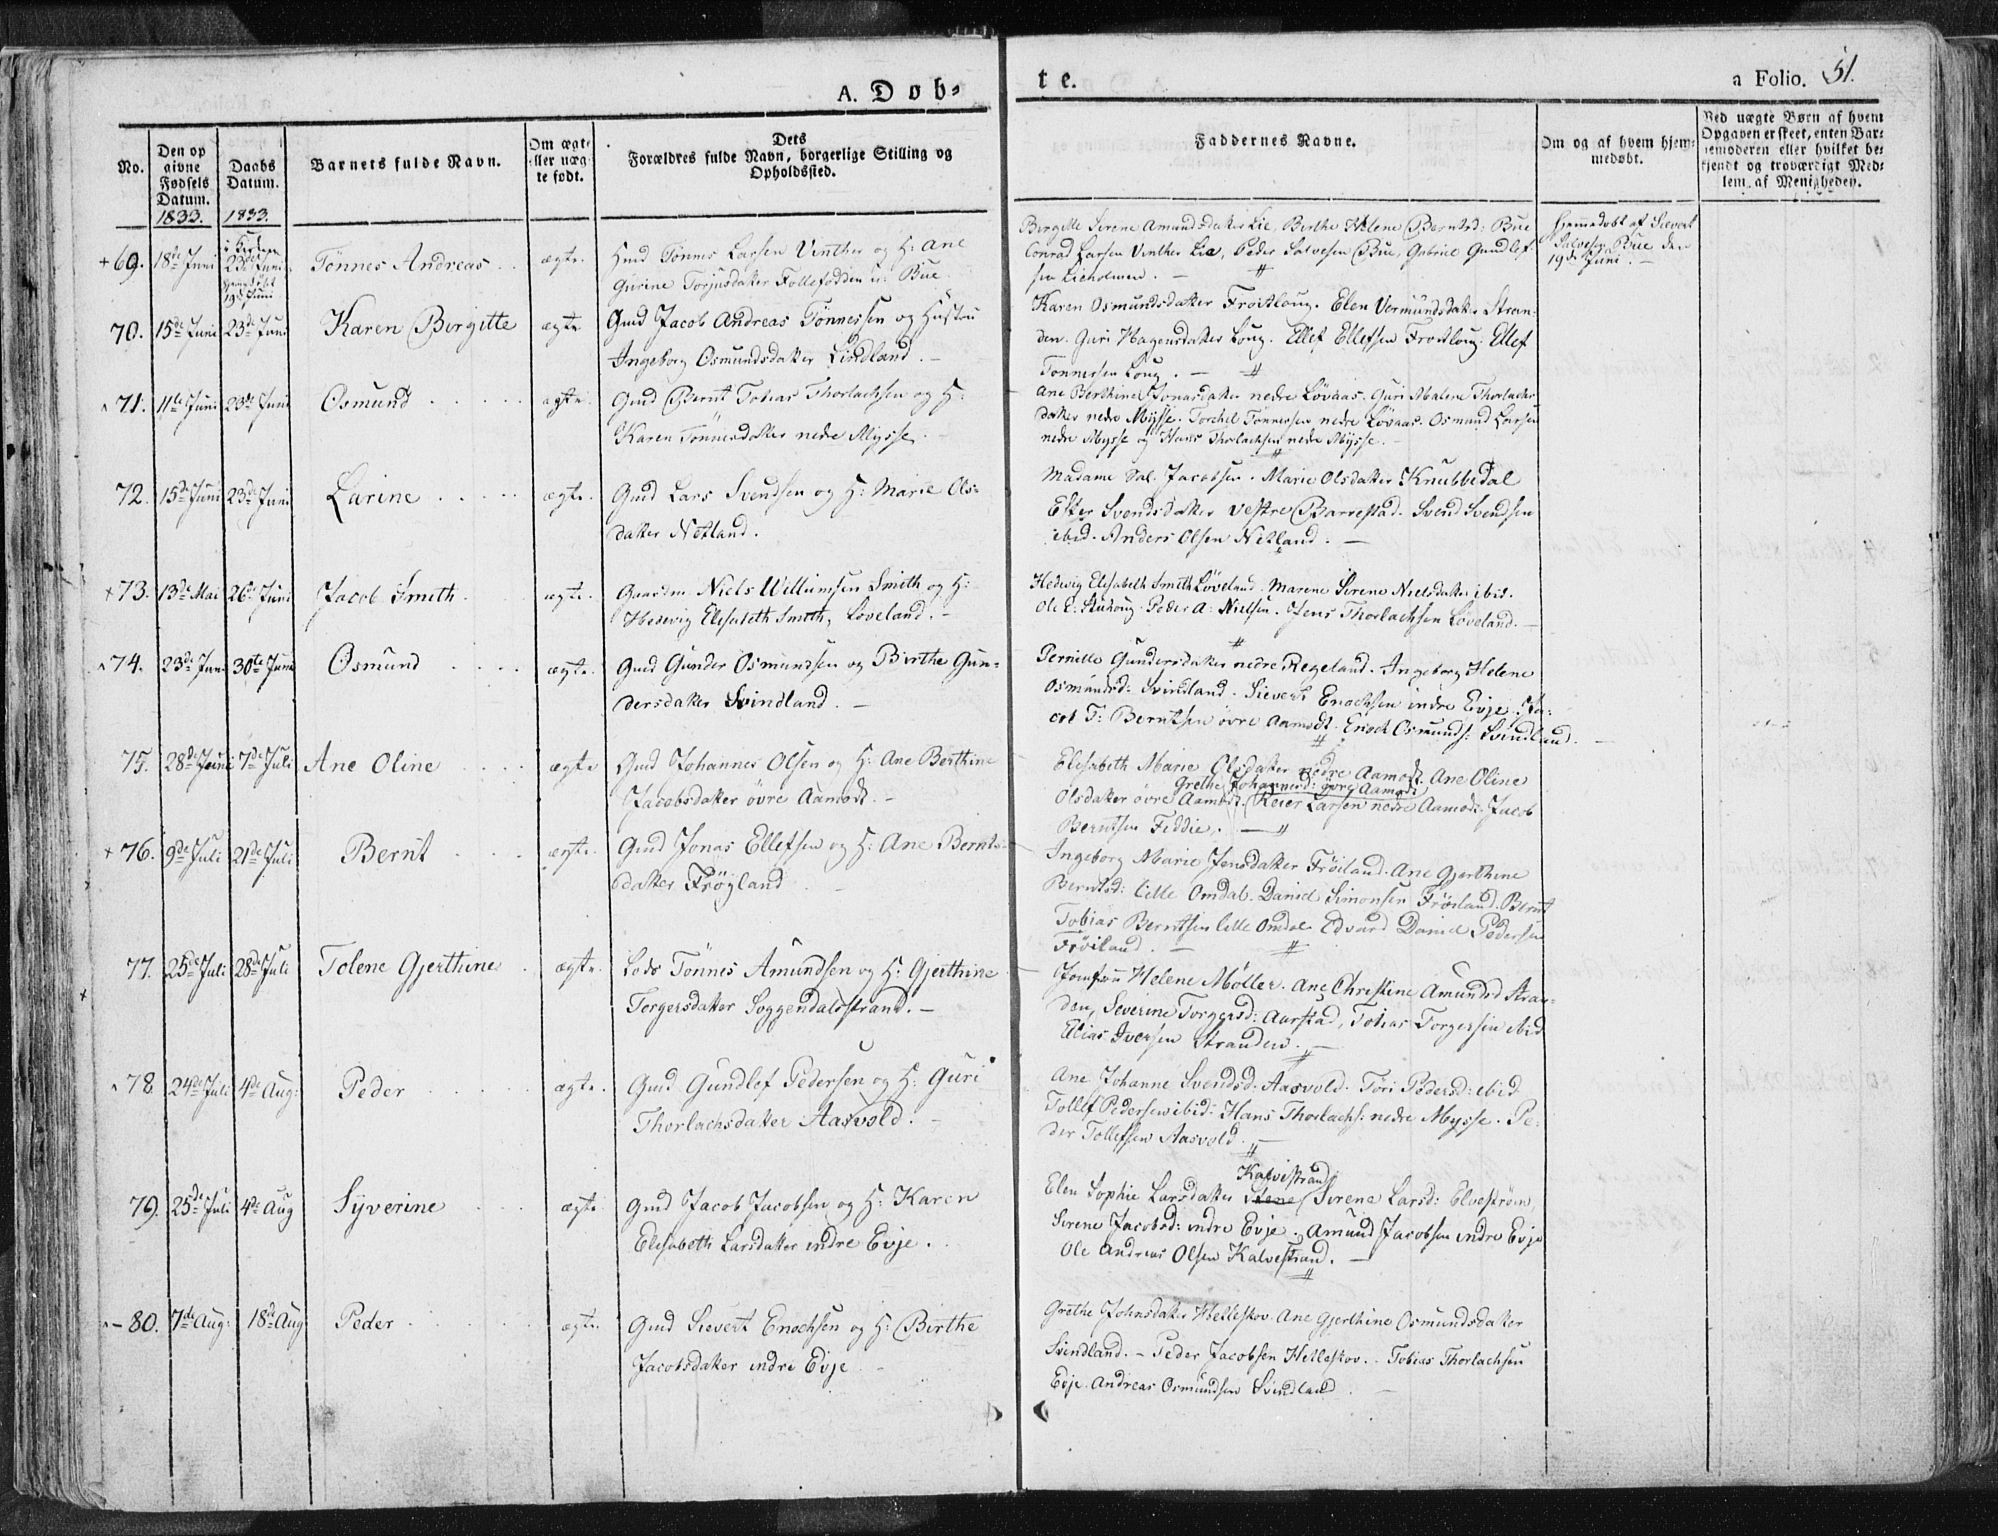 A. Døb-
te.
a Folio. 51.
No.
Den op
givne
Fødsels
Datum.
1833.
Daabs
Datum.
1833.
Barnets fulde Navn.
Om ægt-
eller uæg-
te født.
Dets
Forældres fulde Navn, borgerlige Stilling og
Opholdssted.
Faddernes Navne.
Om og af hvem hjem-
medøbt.
Ved uægte Børn af hvem
Opgaven er skeet, enten Bar-
nemoderen eller hvilket be-
kjendt og troværdigt Med-
lem af Menigheden.
+ 69. 18de Juni
i Kirken
23de Juni
hjemmedøbt
19de Juni
Tønnes Andreas
ægte.
Gmd Tønnes Larsen Vinther og H: Ane
Gurine Torjusdatter Follefødden u: Bue
Birgitte Serene Amundsdatter Lie, Berthe Helene Berntsd: Bue
Conrad Larsen Vinther Lie, Peder Salvesen Bue, Gabriel Gundlef
sen Lieholmen. —
Hjemmedøbt af Sievert
Salvesen Bue den
19de Juni. —
70. 15de Juni 23de Juni Karen Birgitte ægte
Gmd Jacob Andreas Tønnessen og Hustru
Ingeborg Osmundsdatter Lindland. —
Karen Osmundsdatter Frøitloug. Elen Vermundsdatter Stran-
den. Guri Hagensdatter Loug. Ellef Ellefsen Frøitloug. Ellef
Tønnessen Loug. —
71. 11te Juni 23de Juni Osmund ægte.
Gmd Bernt Tobias Thorlachsen og H:
Karen Tønnesdatter nedre Mysse. —
Ane Berthine Jonasdatter nedre Lövaas. Guri Malene Thorlachs-
datter nedre Mysse. Torchel Tønnessen nedre Lövaas. Osmund Larsen
nedre Mysse og Hans Thorlachsen nedre Mysse. —
72. 15de Juni 23de Juni Larine ægte.
Gmd Lars Svendsen og H: Marie Ols-
datter Netland.
Madame Sal. Jacobsen. Marie Olsdatter Knubbedal
Ester Svendsdatter vestre Barrestad. Svend Svendsen
ibid. Anders Olsen Netland. —
+ 73. 13de Mai 26de Juni Jacob Smith ægte.
Gaardm. Niels Willumsen Smith og H:
Hedevig Elisabeth Smith, Løveland. —
Hedevig Elisabeth Smith Løveland. Marene Serene Nielsdatter ibid.
Ole E: Peder A: Nielsen. Jens Thorlachsen Løveland. —
74. 23de Juni 30te Juni Osmund ægte.
Gmd Gunder Osmundsen og Birthe Gun-
dersdatter Svindland. —
Pernille Gundersdatter nedre Regeland. Ingeborg Helene
Osmundsd: Svindland. Sievert Enochsen indre Evje. Ja-
cob T: Berntsen øvre Aamodt. Enoch Osmunds: Svindland. —
75. 28de Juni 7de Juli Ane Oline ægte
Gmd Johannes Olsen og H: Ane Berthine
Jacobsdatter øvre Aamodt. —
Elisabeth Marie Olsdatter nedre Aamodt. Ane Oline
Grethe Johannesd: øvre Aamodt
Olsdatter øvre Aamodt. Reier Larsen nedre Aamodt. Jacob
Berntsen Fiddie. —
+ 76. 9de Juli 21de Juli Bernt ægte.
Gmd Jonas Ellefsen og H: Ane Bernts-
datter Frögland
Ingeborg Marie Jensdatter Fröiland. Ane Gjerthine
Berntsd: lille Omdal. Daniel Simonsen Fröiland. Bernt
Tobias Berntsen lille Omdal Edvard Daniel Pedersen
Fröiland. —
77. 25de Juli 28de Juli Tolene Gjerthine ægte.
Lods Tönnes Amundsen og H: Gjerthine
Torgersdatter Soggendalsstrand. —
Jomfru Helene Møller. Ane Christine Amundsd Stran-
den, Severine Torgersd: Aarstad, Tobias Torgersen ibid
Elias Iversen Stranden. —
78 24de Juli 4de Aug: Peder ægte.
Gmd Gundlef Pedersen og H: Guri
Thorlachsdatter Aasvold. —
Ane Johanne Svendsd. Aasvold. Töri Pedersd: ibid
Tollef Pedersen ibid: Hans Thorlachs: nedre Mysse. Pe-
der Tollefsen Aasvold. —
79. 25de Juli 4de Aug Syverine ægte
Gmd Jacob Jacobsen og H: Karen
Elisabeth Larsdatter indre Evje.
Kalvestrand
Elen Sophie Larsdatter Serene Larsd: Elvestrøm
Serene Jacobsd: indre Evje. Amund Jacobsen indre Evje
Ole Andreas Olsen Kalvestrand. —
80. 7de Aug: 18de Aug Peder ægte.
Gmd Sievert Enochsen og H: Birthe
Jacobsdatter indre Evje —
Grethe Johnsdatter Helleskov. Ane Gjerthine Osmundsdatter
Svindland. — Peder Jacobsen Helleskov. Tobias Thorlachsen
Evje. Andreas Osmundsen Svindland —